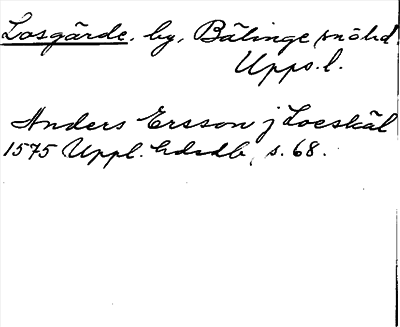 Losgärde, by, Bälinge snöhd
Upps. l.
Anders Ersson j Loeskäl
1575 Uppl. hdrdb, s. 68.